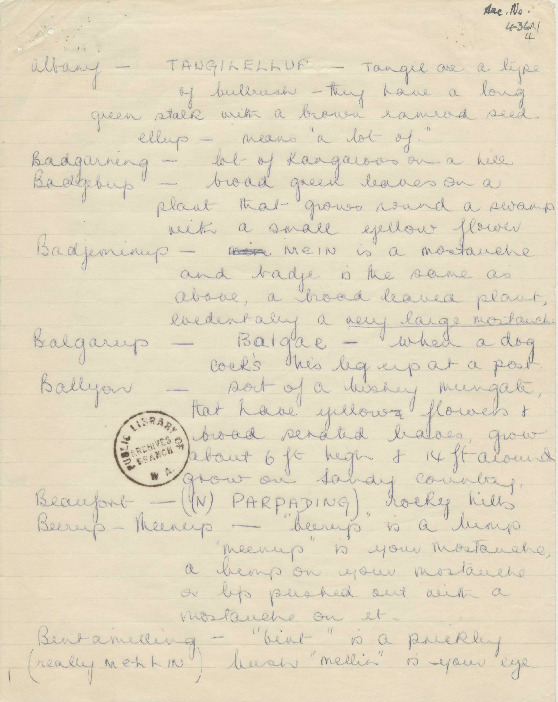 Acc. No.
436A/
4
Albany - TANGILELLUP - Tangil are a type
of bullrush - they have a long
green stalk with a brown ramrod seed
ellup - means "a lot of."
Badgarning - lot of Kangaroos on a hill
Badgebup - broad green leaves on a
plant that grows round a swamp
with a small yellow flower
Badjeminup - MEIN is a mostauche
and badje is the same as
above, a broad leaved plant,
evedentally a very large mostauche
Balgarup - Balgae - when a dog
cock's his leg up at a post
Ballyon - sort of a bushey mungate,
that have yellow flowers &
broad serated leaves, grow
about 6 ft high & 14 ft around
grow on sandy country.
Beaufort - (N) PARPADING) rocky hills
Beerup - Meenup - "beerup" is a bump
"meenup" is your mostauche,
a bump on your mostauche
or lip pushed out with a
mostauche on it.
Bintamilling - "bint" is a prickly
(really MELLIN) bush "mellin" is your eye
PUBLIC LIBRARY OF
ARCHIVES
BRANCH
W A.